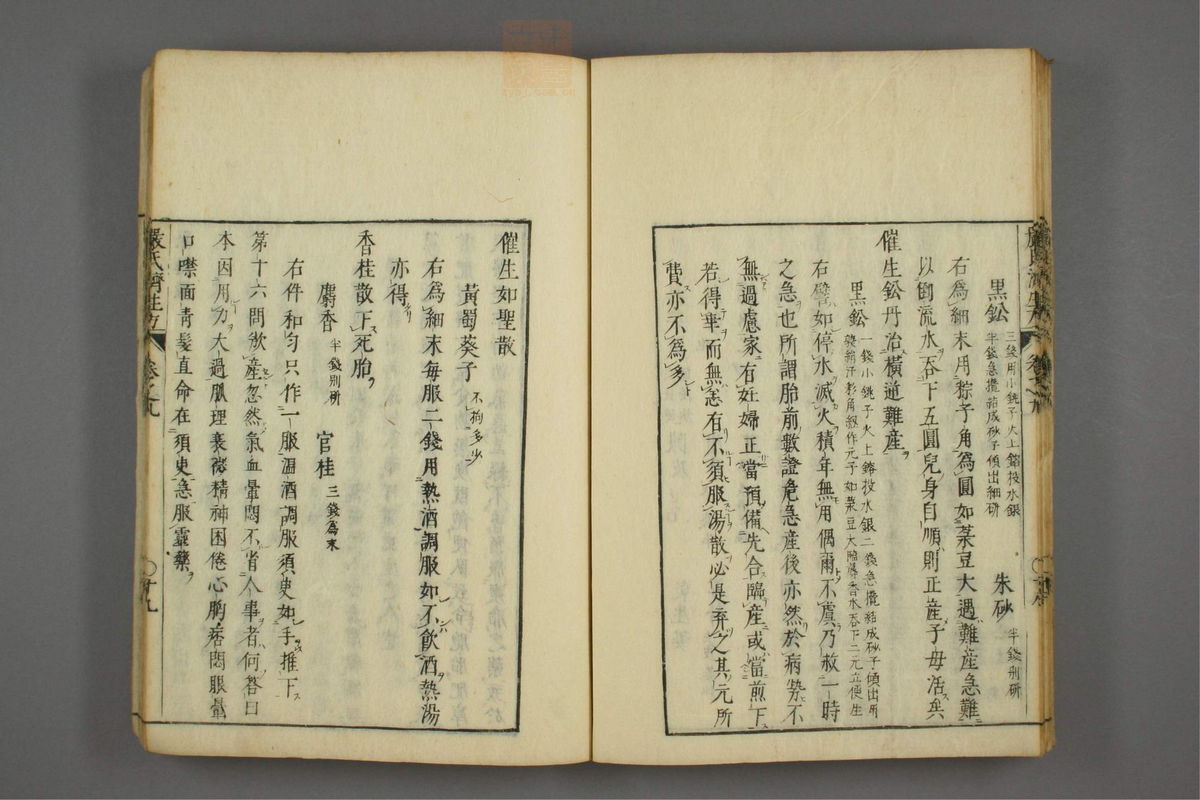 黑鈆 三錢用小銚子火上鎔投水銀半錢急攪結成砂子傾出細研 朱砂 半錢別研
右爲細末用粽子角爲圓如菉豆大遇難産急難
以倒流水吞下五圓兒身自順則正産子母活矣
催生鈆丹治橫道難產
黑鈆 一錢小銚子火上鎔投水銀二錢急攪結成砂子傾出用
右譬如停水滅火積年無用偶爾不虞乃救一時
之急也所謂胎前數證危急産後亦然於病勢不
無過慮家有妊婦正當預備先合臨産或當煎下
若得車而無恙有不須服湯散必是棄之其元所
費亦不爲多
催生如聖散
黃蜀葵子 不拘多少
右爲細末每服二錢用熱酒調服如不飲酒熱湯
亦得
香桂散下死胎
麝香 半錢別研 官桂 三錢爲末
右件和勻只作一服溫酒調服須臾如手推下
第十六問欲產忽然氣血暈悶不省人事者何答曰
本因用力太過脉理衰微精神困倦心胸痞悶眼暈
口噤面青髮直命在須臾急服靈藥
嚴氏濟生方 卷之九 十九